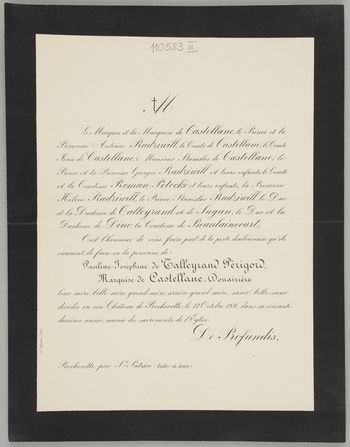 110583 III
M
Le Marquis et la Marquise de Castellane, le Prince et la
Princesse Antoine Radziwill, le Comte de Castellane, le Comte
Jean de Castellane, Monsieur Stanislas de Castellane, le
Prince et la Princesse Georges Radziwill et leurs enfants, le Comte
et la Comtesse Roman Potocki et leurs enfants, la Princesse
Hélène Radziwill, le Prince Stanislas Radziwill, le Duc
et la Duchesse de Talleyrand et de Sagan, le Duc et la
Duchesse de Dino, la Comtesse de Beaulaincourt,
Ont l'honneur de vous faire part de la perte douloureuse qu'ils
viennent de faire en la personne de:
Pauline-Joséphine de Talleyrand Périgord,
Marquise de Castellane, Douairière,
leur mère, belle-mère, grand'mère, arrière grand'mère, sœur, belle-sœur,
décédée en son Château de Rochecotte, le 12 Octobre 1890, dans sa soixante-
dixième année, munie des sacrements de l'Église.
De Profundis.
Rochecotte, par St Patrice (Indre et Loire)